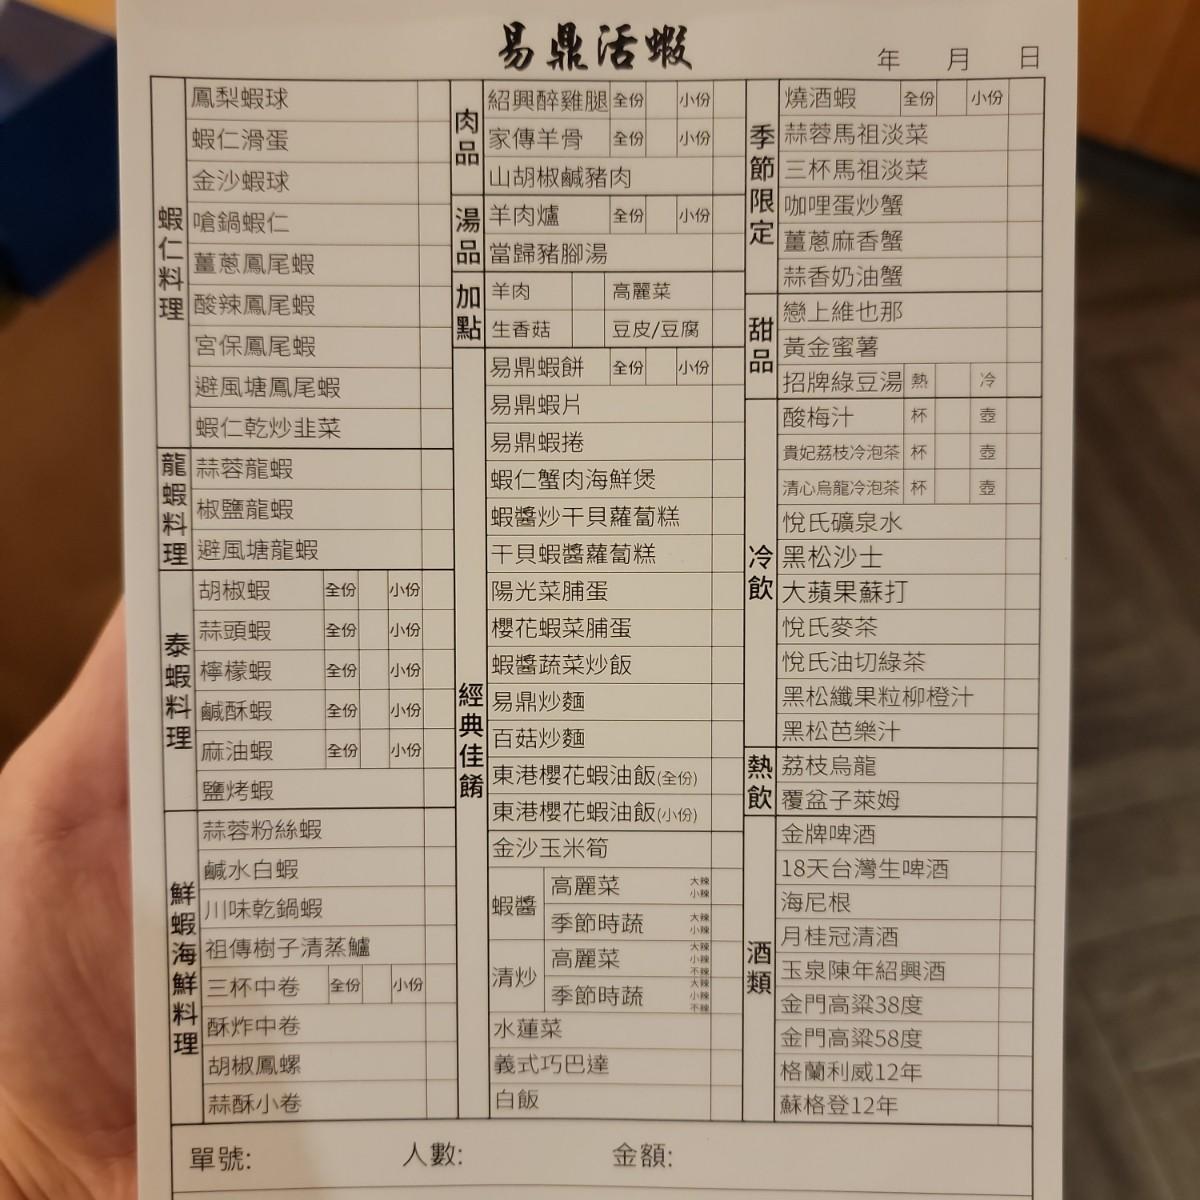 易鼎活蝦
年 月 日
蝦仁料理
鳳梨蝦球
蝦仁滑蛋
金沙蝦球
嗆鍋蝦仁
薑蔥鳳尾蝦
酸辣鳳尾蝦
宮保鳳尾蝦
避風塘鳳尾蝦
蝦仁乾炒韭菜
龍蝦料理
蒜蓉龍蝦
椒鹽龍蝦
避風塘龍蝦
泰蝦料理
胡椒蝦 全份 小份
蒜頭蝦 全份 小份
檸檬蝦 全份 小份
鹹酥蝦 全份 小份
麻油蝦 全份 小份
鹽烤蝦
鮮蝦海鮮料理
蒜蓉粉絲蝦
鹹水白蝦
川味乾鍋蝦
祖傳樹子清蒸鱸
三杯中卷 全份 小份
酥炸中卷
胡椒鳳螺
蒜酥小卷
肉品
紹興醉雞腿 全份 小份
家傳羊骨 全份 小份
山胡椒鹹豬肉
湯品
羊肉爐 全份 小份
當歸豬腳湯
加點
羊肉 高麗菜
生香菇 豆皮/豆腐
經典佳餚
易鼎蝦餅 全份 小份
易鼎蝦片
易鼎蝦捲
蝦仁蟹肉海鮮煲
蝦醬炒干貝蘿蔔糕
干貝蝦醬蘿蔔糕
陽光菜脯蛋
櫻花蝦菜脯蛋
蝦醬蔬菜炒飯
易鼎炒麵
百菇炒麵
東港櫻花蝦油飯(全份)
東港櫻花蝦油飯(小份)
金沙玉米筍
蝦醬
高麗菜 大辣 小辣
季節時蔬 大辣 小辣
清炒
高麗菜 大辣 小辣 不辣
季節時蔬 大辣 小辣 不辣
水蓮菜
義式巧巴達
白飯
季節限定
燒酒蝦 全份 小份
蒜蓉馬祖淡菜
三杯馬祖淡菜
咖哩蛋炒蟹
薑蔥麻香蟹
蒜香奶油蟹
甜品
戀上維也那
黃金蜜薯
招牌綠豆湯 熱 冷
冷飲
酸梅汁 杯 壺
貴妃荔枝冷泡茶 杯 壺
清心烏龍冷泡茶 杯 壺
悅氏礦泉水
黑松沙士
大蘋果蘇打
悅氏麥茶
悅氏油切綠茶
黑松纖果粒柳橙汁
黑松芭樂汁
熱飲
荔枝烏龍
覆盆子萊姆
酒類
金牌啤酒
18天台灣生啤酒
海尼根
月桂冠清酒
玉泉陳年紹興酒
金門高粱38度
金門高粱58度
格蘭利威12年
蘇格登12年
單號: 人數: 金額: